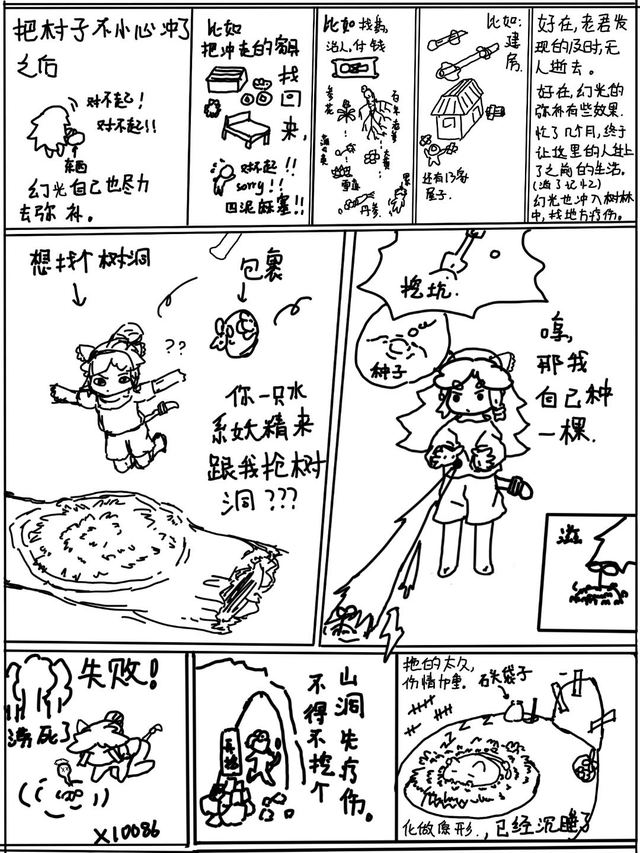 把村子不小心冲了
之后
对不起！
对不起！！
东西
幻光自己也尽力
去弥补。
比如
把冲走的家具
找回来,
对不起！！
sorry！！
四泥酥塞！！
比如找药,
治人,付钱
丹参
比如:
建房.
还有13多
屋子.
好在,老君发
现的及时,无
人逝去。
好在,幻光的
弥补有些效果.
忙了几个月,终于
让这里的人过上
了之前的生活。
(消了记忆)
幻光也冲入树林
中,找地方疗伤。
想找个树洞
??
包裹
你一只水
系妖精来
跟我抢树
洞???
挖坑.
种子
哼,
那我
自己种
一棵.
滋
失败！
涝死了
X10086
山洞先疗伤。
不得不挖个
拖的太久,
伤情加重.
化做原形.,已经沉睡了